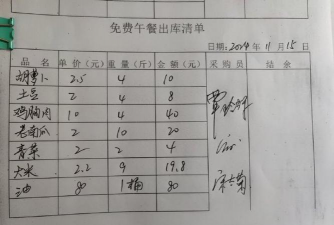 免费午餐出库清单
日期: 2024 年 11 月 15 日
品 名 单 价 (元) 重 量 (斤) 金 额 (元) 采 购 员 结 余
胡萝卜 2.5 4 10
土豆 2 4 8
鸡胸肉 10 4 40
老南瓜 2 10 20
青菜 2 2 4
大米 2.2 9 19.8
油 80 1桶 80